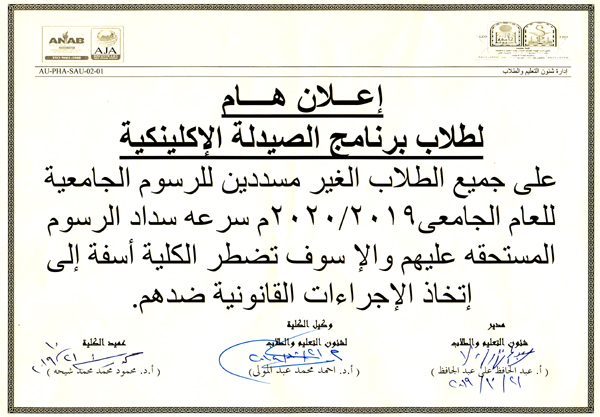 ANAB
AJA
AU-PHA-SAU-02-01
إدارة شئون التعليم والطلاب
إعـــلان هـــام
لطلاب برنامج الصيدلة الإكلينكية
على جميع الطلاب الغير مسددين للرسوم الجامعية
للعام الجامعى٢٠٢٠/٢٠١٩م سرعه سداد الرسوم
المستحقه عليهم والإ سوف تضطر الكلية أسفة إلى
إتخاذ الإجراءات القانونية ضدهم.
مدير
شئون التعليم والطلاب
( أ. عبد الحافظ على عبد الحافظ )
وكيل الكلية
لشئون التعليم والطلاب
( أ.د. احمد محمد عبد المولى )
عميد الكلية
( أ.د. محمود محمد محمد شيحه )